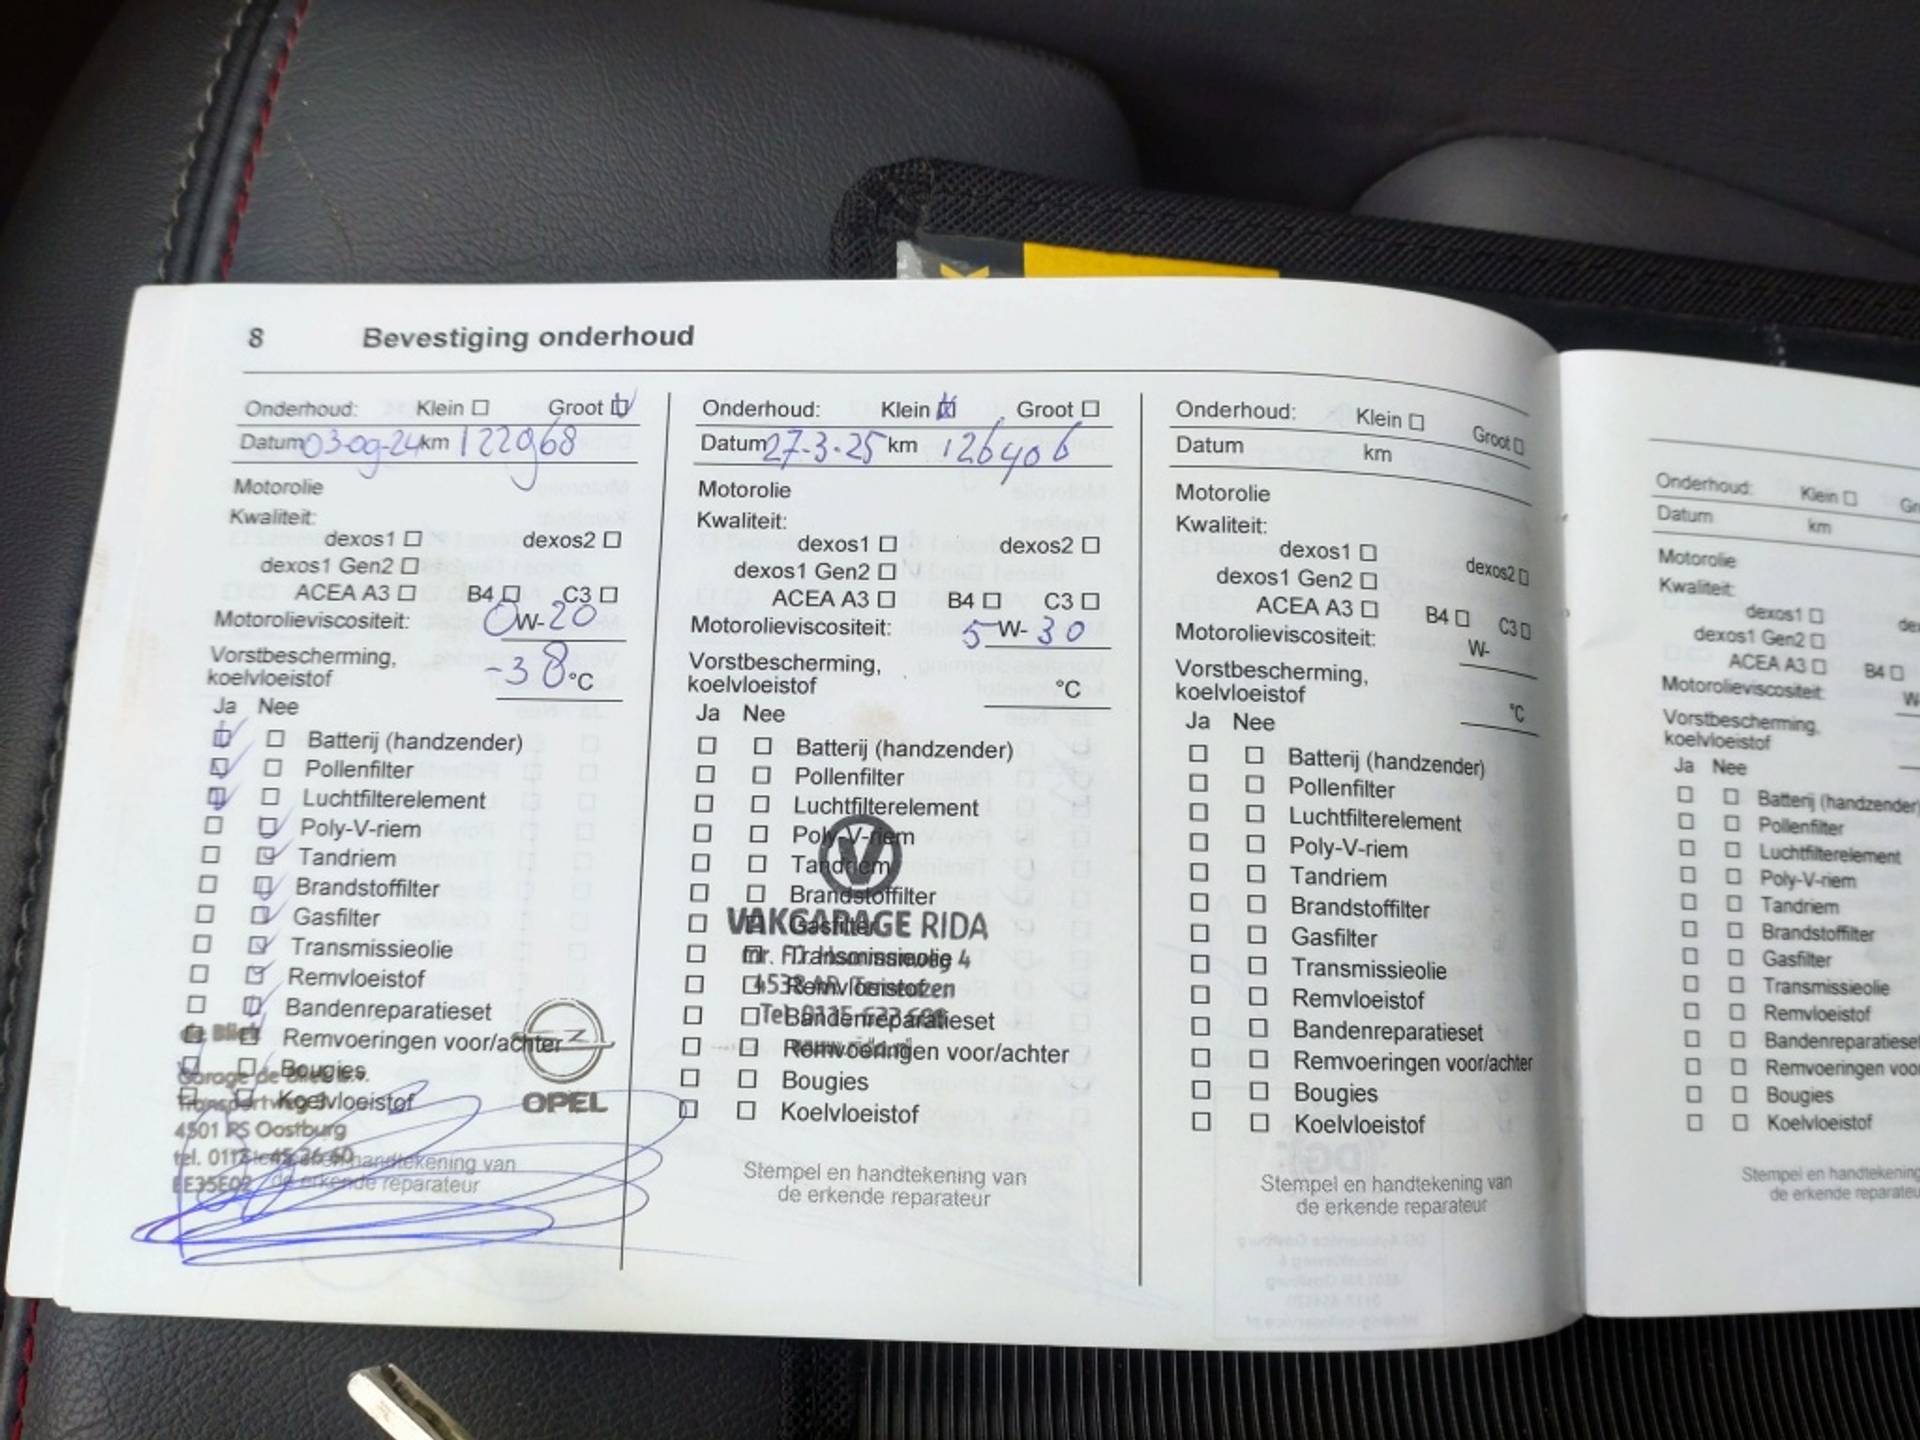 8 Bevestiging onderhoud
Onderhoud: Klein Groot
Datum 03-09-24 km 122968
Motorolie
Kwaliteit:
dexos1 dexos2
dexos1 Gen2
ACEA A3 B4 C3
Motorolieviscositeit: 0W-20
Vorstbescherming,
koelvloeistof -38 °C
Ja Nee
Batterij (handzender)
Pollenfilter
Luchtfilterelement
Poly-V-riem
Tandriem
Brandstoffilter
Gasfilter
Transmissieolie
Remvloeistof
Bandenreparatieset
Remvoeringen voor/achter
Bougies
Koelvloeistof
Garage de
4501 PS Oostburg
handtekening van
de erkende reparateur
OPEL
Onderhoud: Klein Groot
Datum 27-3-25 km 126406
Motorolie
Kwaliteit:
dexos1 dexos2
dexos1 Gen2
ACEA A3 B4 C3
Motorolieviscositeit: 5W-30
Vorstbescherming,
koelvloeistof °C
Ja Nee
Batterij (handzender)
Pollenfilter
Luchtfilterelement
Poly-V-riem
Tandriem
Brandstoffilter
VAKGARAGE RIDA
Gasfilter
Transmissieolie
Remvloeistof
Bandenreparatieset
Remvoeringen voor/achter
Bougies
Koelvloeistof
Stempel en handtekening van
de erkende reparateur
Onderhoud: Klein Groot
Datum km
Motorolie
Kwaliteit:
dexos1 dexos2
dexos1 Gen2
ACEA A3 B4 C3
Motorolieviscositeit: W-
Vorstbescherming,
koelvloeistof °C
Ja Nee
Batterij (handzender)
Pollenfilter
Luchtfilterelement
Poly-V-riem
Tandriem
Brandstoffilter
Gasfilter
Transmissieolie
Remvloeistof
Bandenreparatieset
Remvoeringen voor/achter
Bougies
Koelvloeistof
Stempel en handtekening van
de erkende reparateur
Onderhoud: Klein Gr
Datum km
Motorolie
Kwaliteit:
dexos1 de
dexos1 Gen2
ACEA A3 B4
Motorolieviscositeit: W
Vorstbescherming,
koelvloeistof
Ja Nee
Batterij (handzender)
Pollenfilter
Luchtfilterelement
Poly-V-riem
Tandriem
Brandstoffilter
Gasfilter
Transmissieolie
Remvloeistof
Bandenreparatieset
Remvoeringen voor
Bougies
Koelvloeistof
Stempel en handtekening
de erkende reparateu